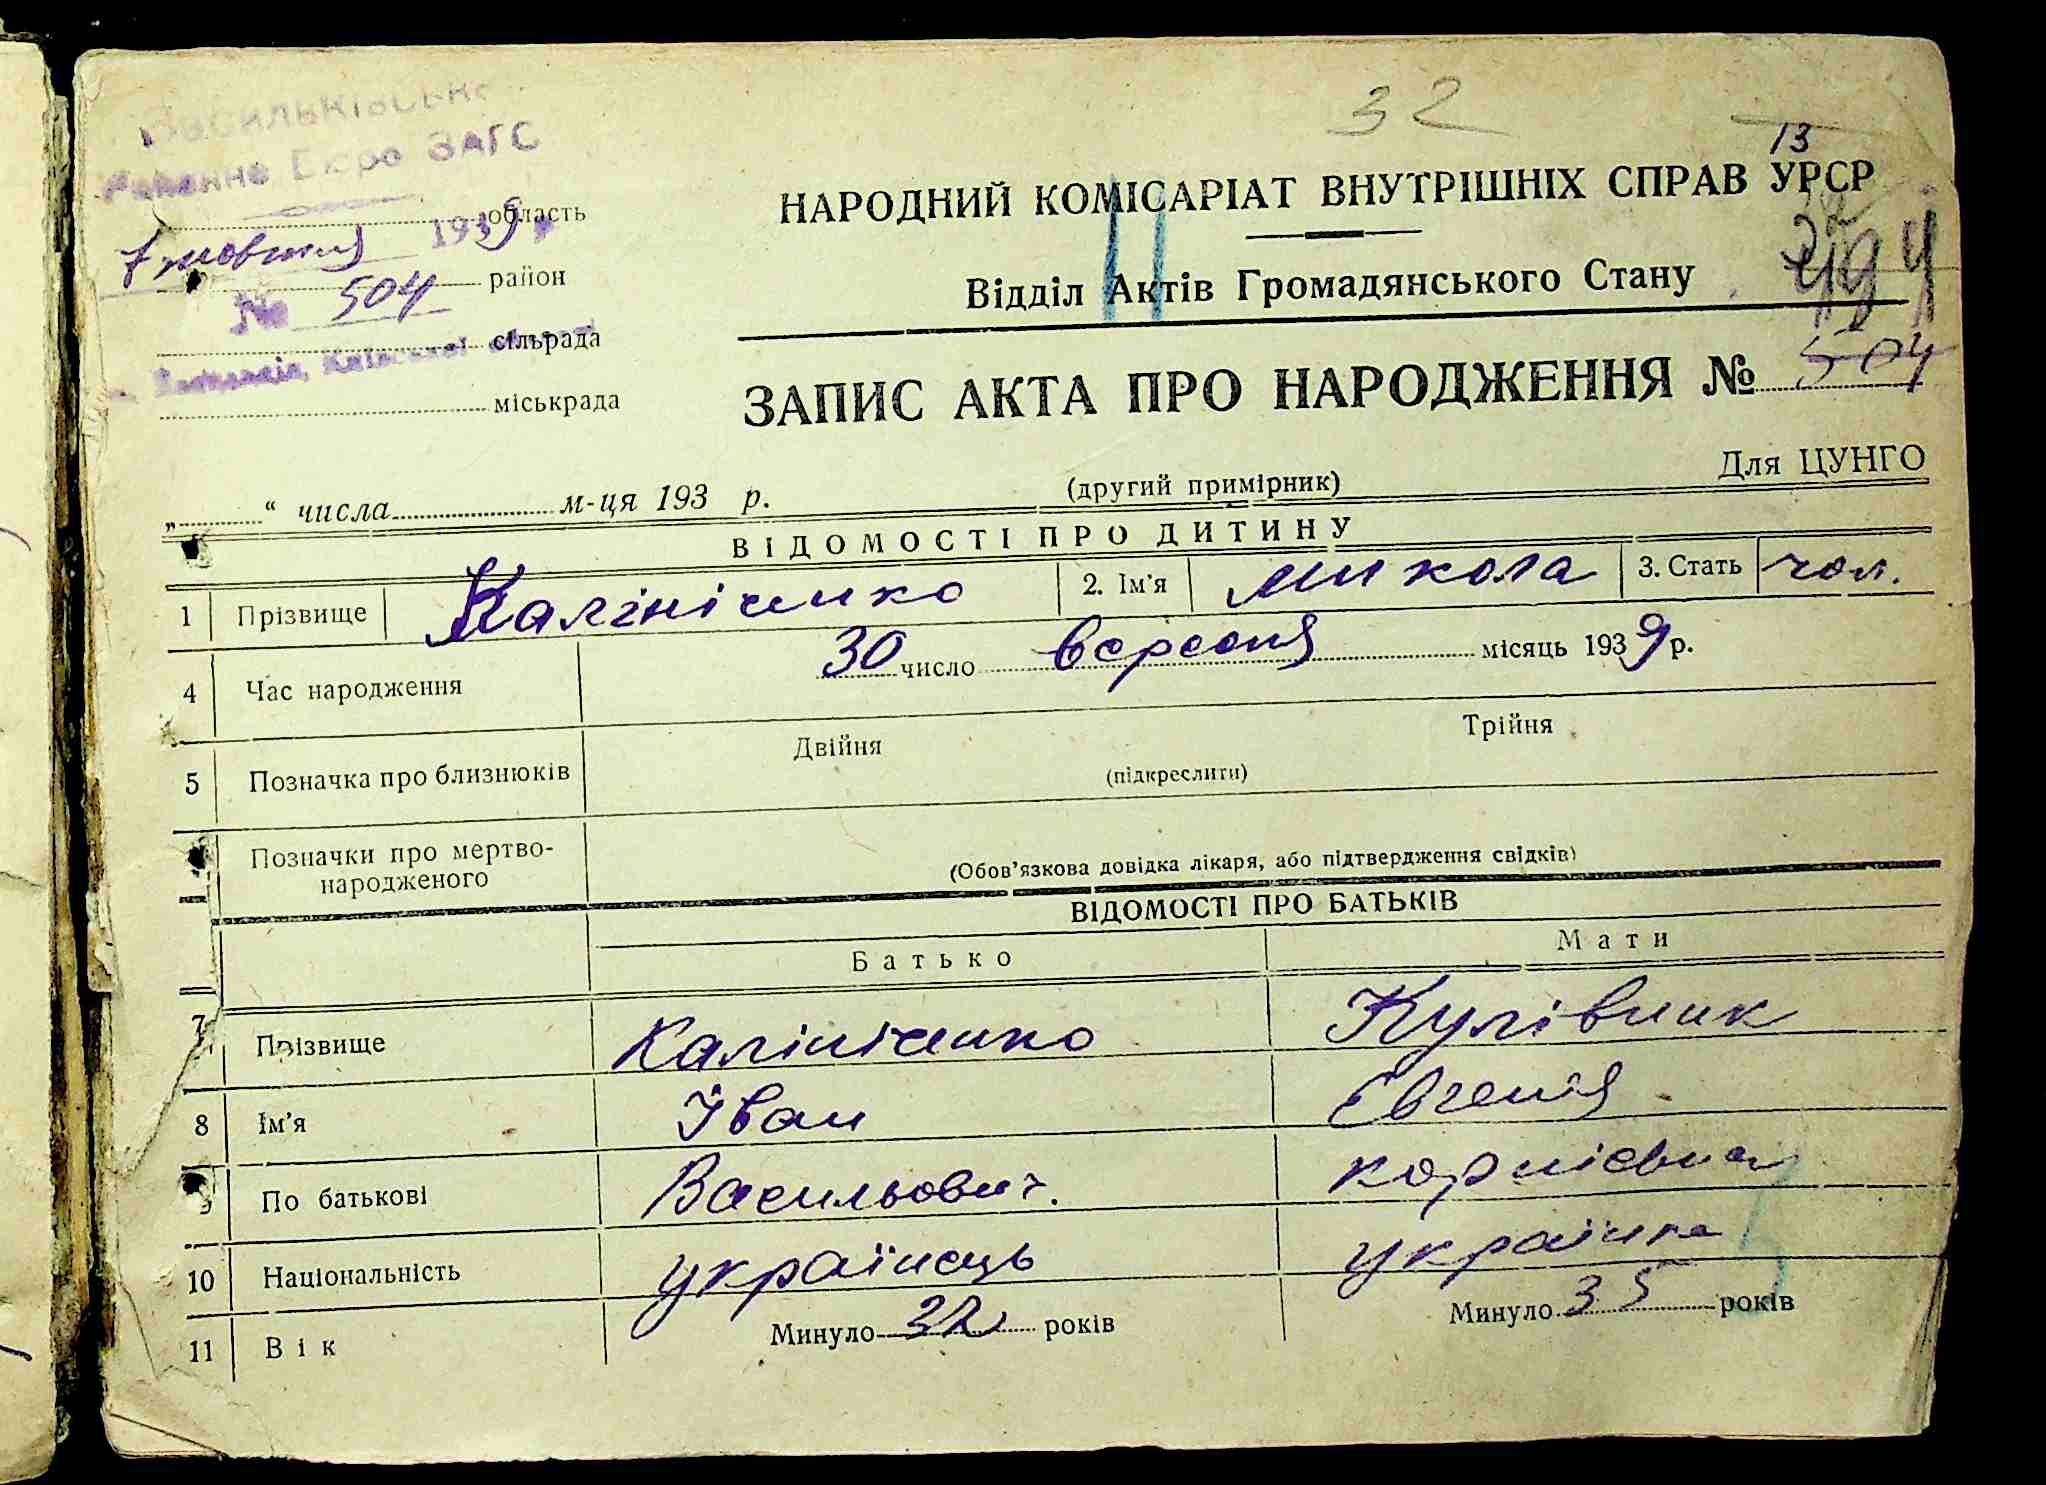 Васильківське
Районне Бюро ЗАГС
область
7 жовтня 1939 р
район
№ 504
сільрада
м. Васильків, Київської області
міськрада
32
13
НАРОДНИЙ КОМІСАРІАТ ВНУТРІШНІХ СПРАВ УРСР
Відділ Актів Громадянського Стану
494
ЗАПИС АКТА ПРО НАРОДЖЕННЯ № 504
„ “ числа м-ця 193 р.
(другий примірник)
Для ЦУНГО
ВІДОМОСТІ ПРО ДИТИНУ
1 Прізвище Калініченко 2. Ім’я Микола 3. Стать чол.
4 Час народження 30 число вересня місяць 1939 р.
5 Позначка про близнюків Двійня Трійня
(підкреслити)
Позначки про мертво-
народженого
(Обов’язкова довідка лікаря, або підтвердження свідків)
ВІДОМОСТІ ПРО БАТЬКІВ
Батько Мати
7 Прізвище Калініченко Кулівник
8 Ім’я Іван Євгенія
9 По батькові Васильович. Корнієвна
10 Національність українець українка
11 Вік Минуло 32 років Минуло 35 років